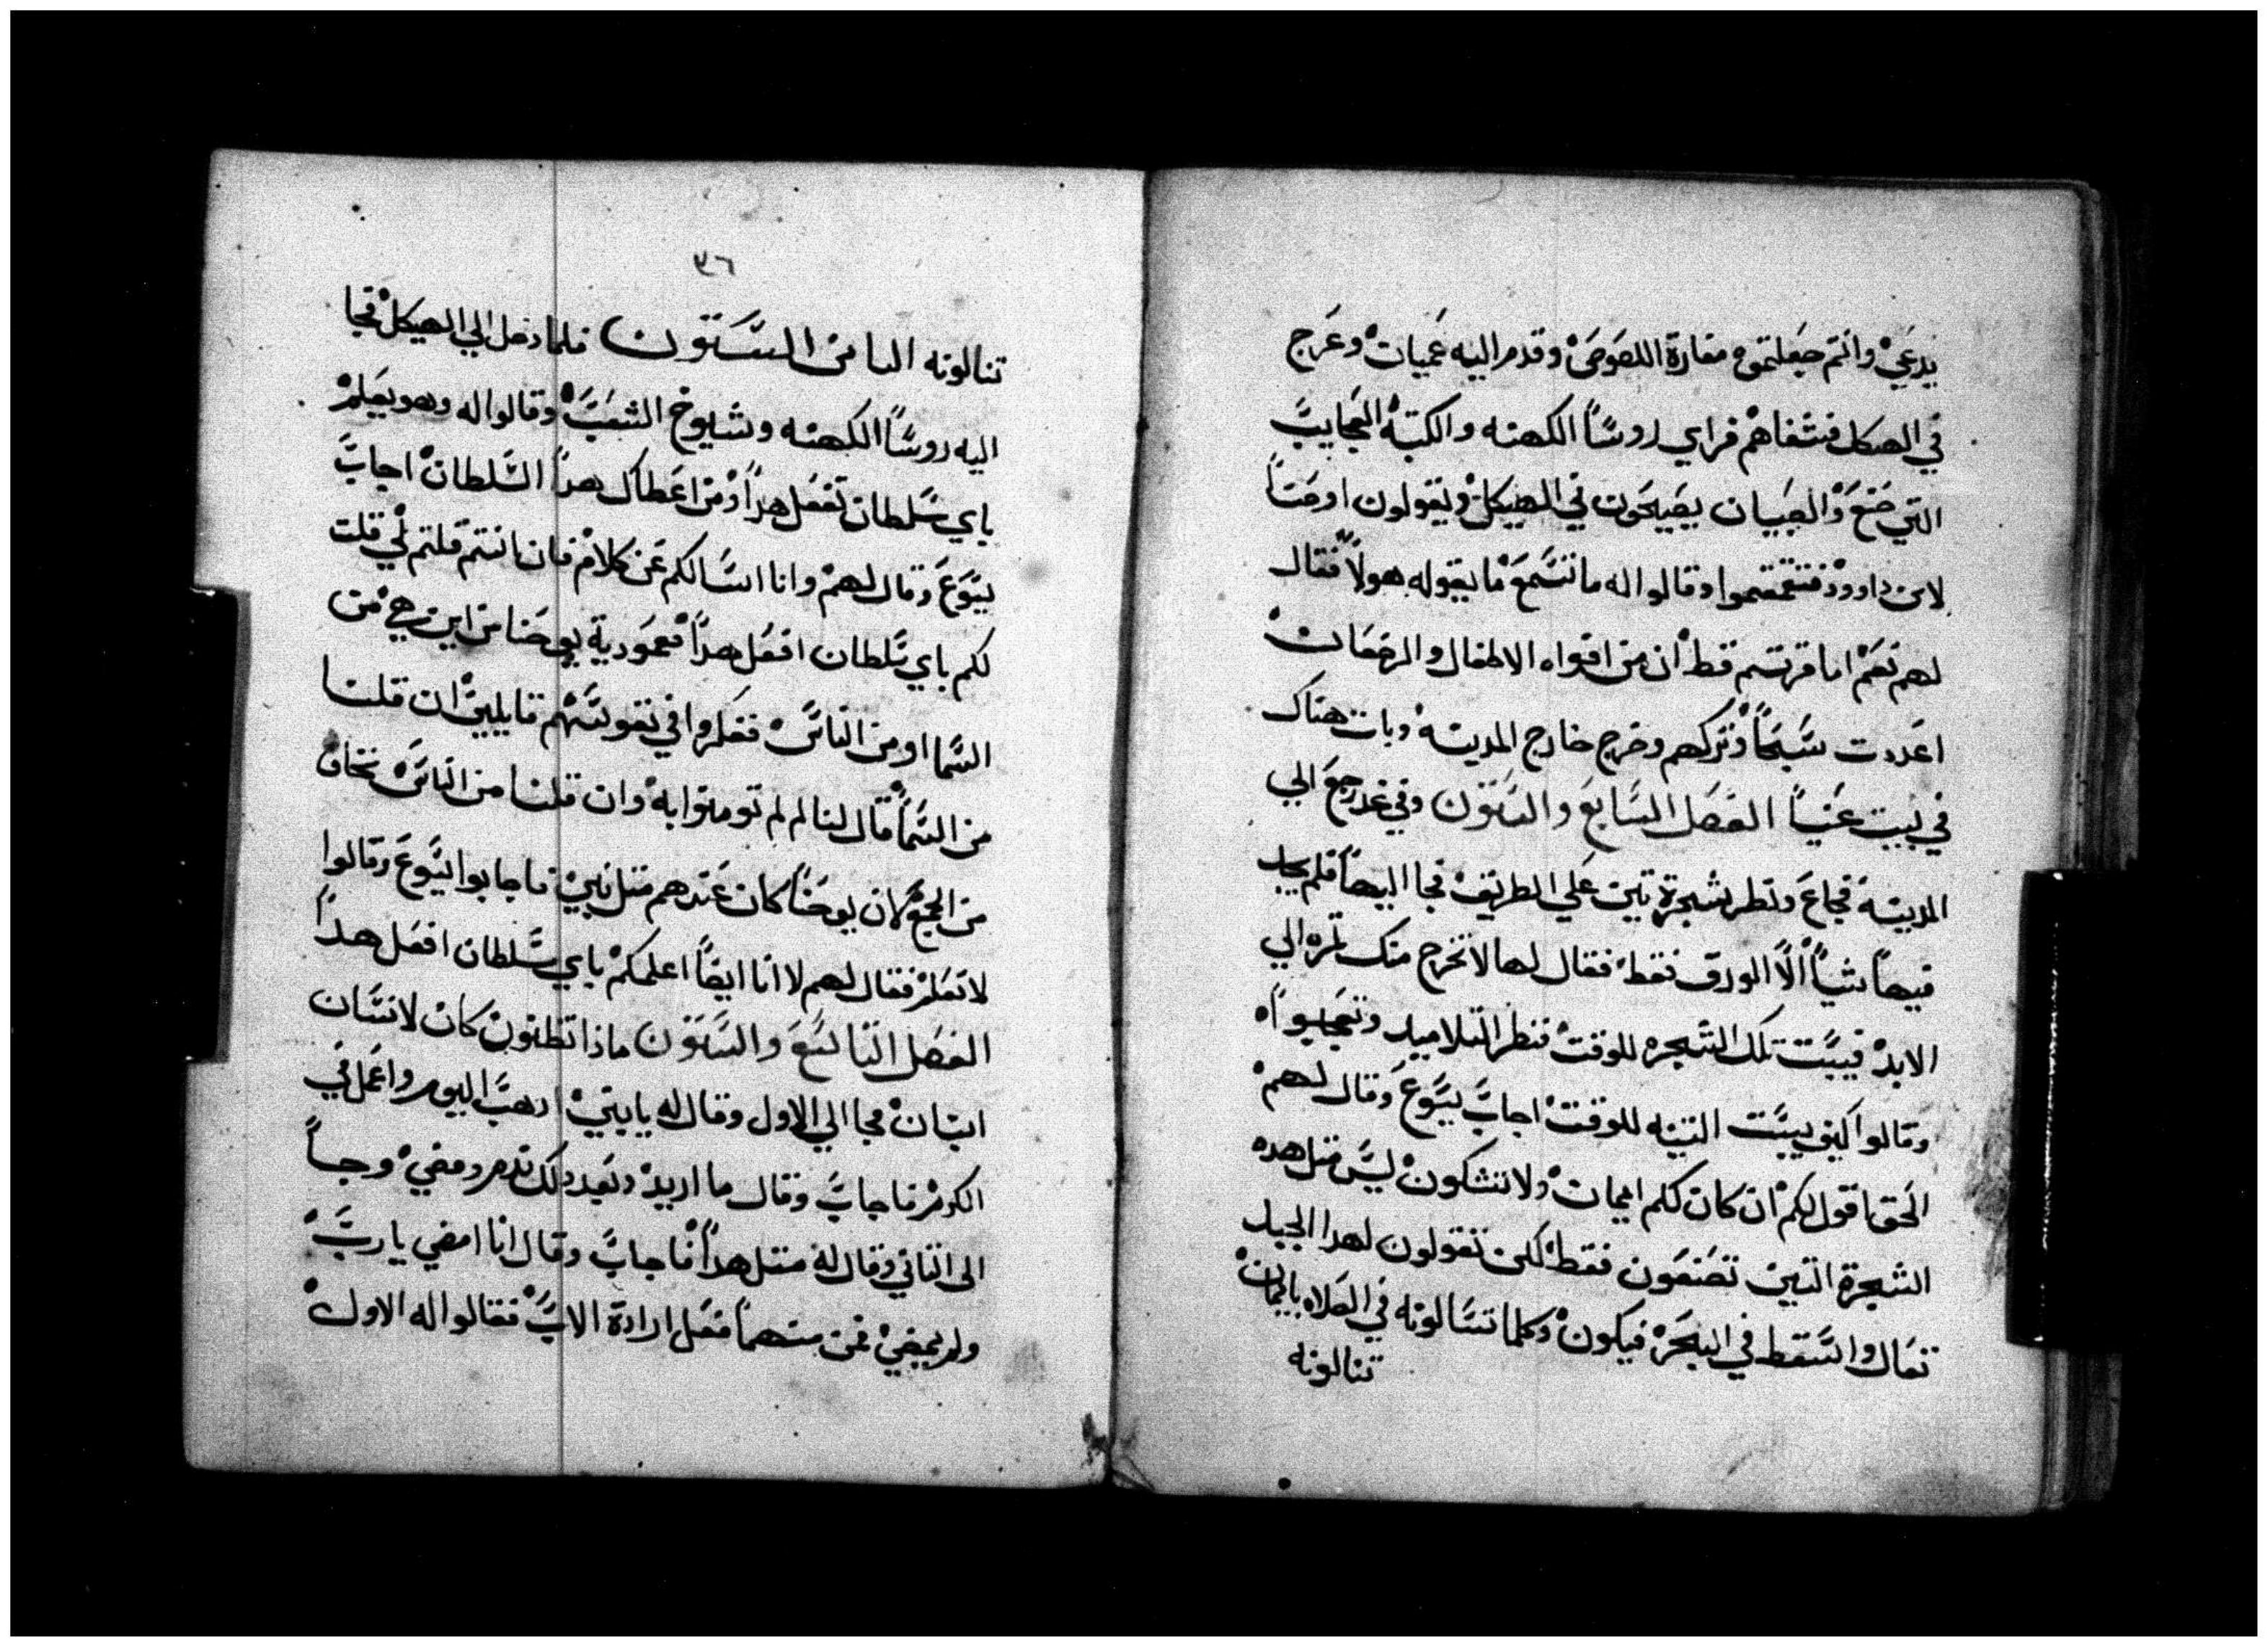 يدعي وانتم جعلتموه مغارة اللصوص وقدم اليه عميان وعرج
في الهيكل فشفاهم فراي روسا الكهنه والكتبه العجايب
التي صنع والصبيان يصيحون في الهيكل ويقولون اوصنا
لابن داوود فتقمقموا وقالوا له ما تسمع ما يقوله هولا فقال
لهم نعم اما قريتم قط ان من افواه الاطفال والرضعان
اعددت سبحا وتركهم وخرج خارج المدينه وبات هناك
في بيت عنيا الفصل السابع والستون وفي غد رجع الي
المدينه فجاع ونظر شجرة تين علي الطريق فجا اليها فلم يجد
فيها شيا الا الورق فقط فقال لها لا تخرج منك تمره الي
الابد فيبست تلك الشجره للوقت فنظر التلاميد وتعجبوا
وقالوا كيف يبست التينه للوقت اجاب يسوع وقال لهم
الحق اقول لكم ان كان لكم ايمان ولا تشكون ليس متل هده
الشجرة التين تصنعون فقط لكن تقولون لهدا الجبل
تعال واسقط في البحر فيكون وكلما تسالونه في الصلاه بايمان
تنالونه
٣٦
تنالونه التامن الستون فلما دخل الي الهيكل فجا
اليه روسا الكهنه وشيوخ الشعب وقالوا له وهو يعلم
باي سلطان تفعل هدا ومن اعطاك هدا السلطان اجاب
يسوع وقال لهم وانا اسالكم عن كلام فان انتم قلتم لي قلت
لكم باي سلطان افعل هدا معمودية يوحنا من اين هي من
السما او من الناس ففكروا في نفوسهم قايلين ان قلنا
من السما قال لنا لم لم تومنوا به وان قلنا من الناس نخاف
من الجمع لان يوحنا كان عندهم متل نبي فاجابوا ليسوع وقالوا
لا نعلم فقال لهم لا انا ايضا اعلمكم باي سلطان افعل هدا
الفصل التاسع والستون ماذا تظنون كان لانسان
ابنان فجا الي الاول وقال له يا بني ادهب اليوم واعمل في
الكرم فاجاب وقال ما اريد وبعد دلك ندم ومضي وجا
الى التاني وقال له متل هدا فاجاب وقال انا امضي يا رب
ولم يمضي فمن منهما فعل ارادة الاب فقالوا له الاول